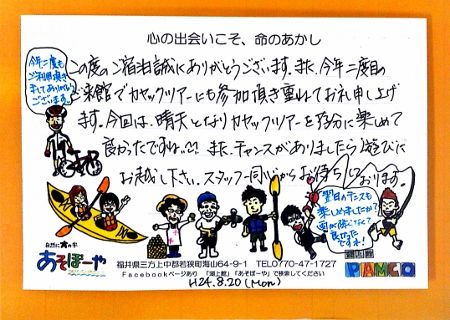 心の出会いこそ、命のあかし
今年二度も
ご利用頂き
ましてありがとう
ございます。
この度のご宿泊誠にありがとうございます。また、今年二度目の
ご来館でカヤックツアーにも参加頂き重ねてお礼申し上げ
ます。今回は、晴天となりカヤックツアーを存分に楽しめて
良かったですね~♪♪ また、チャンスがありましたら遊びに
お越し下さい。スタッフ一同心からお待ちしております。
翌日のテニスも
楽しめましたか?
雨が降らなくて
良かった
ですネ!
自然に大の字
あそぼーや
福井県三方上中郡若狭町海山64-9-1 TEL0770-47-1727
Facebookページあり「湖上館」「あそぼーや」で検索してください
湖上館
PAMCO
H24.8.20(Mon)